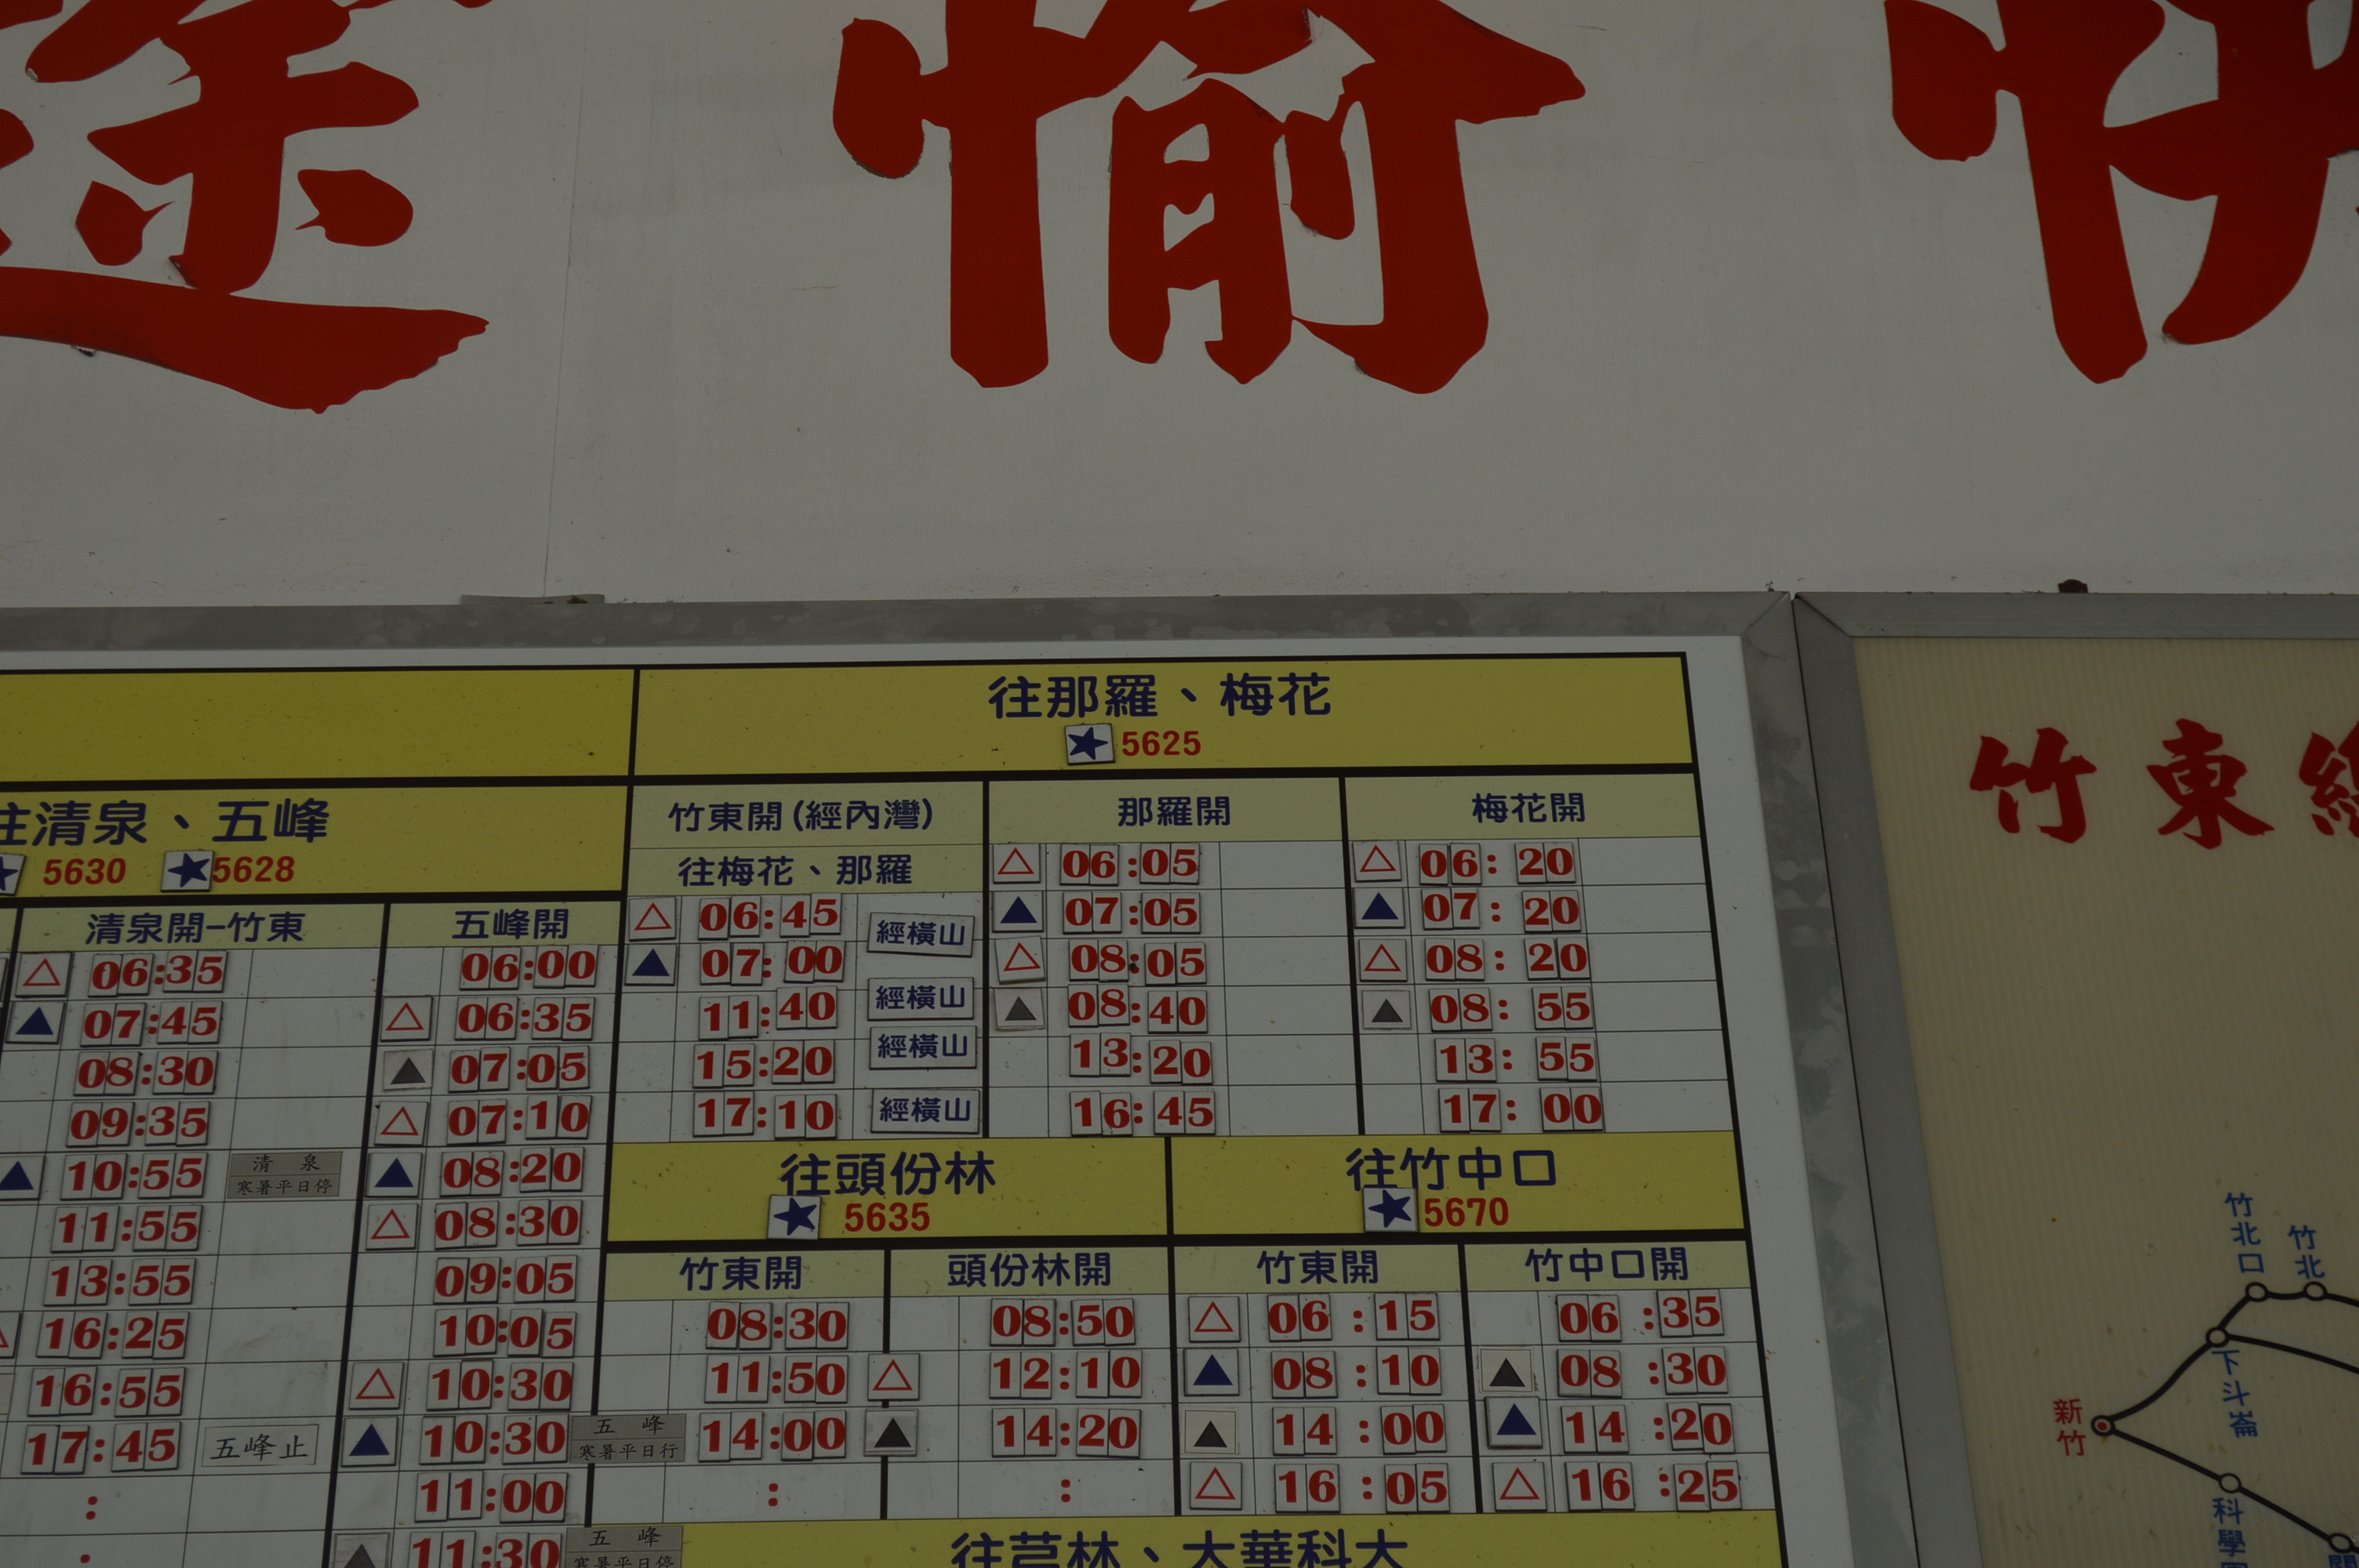 途愉快
往那羅、梅花
5625
往清泉、五峰
5630 5628
竹東開(經內灣)
往梅花、那羅
06:45 經橫山
07:00
11:40 經橫山
15:20 經橫山
17:10 經橫山
那羅開
06:05
07:05
08:05
08:40
13:20
16:45
梅花開
06:20
07:20
08:20
08:55
13:55
17:00
清泉開-竹東
06:35
07:45
08:30
09:35
10:55 清泉
寒暑平日停
11:55
13:55
16:25
16:55
17:45 五峰止
:
:
五峰開
06:00
06:35
07:05
07:10
08:20
08:30
09:05
10:05
10:30
10:30 五峰
寒暑平日行
11:00
11:30 五峰
寒暑平日停
往頭份林
5635
竹東開
08:30
11:50
14:00
:
頭份林開
08:50
12:10
14:20
:
往竹中口
5670
竹東開
06:15
08:10
14:00
16:05
竹中口開
06:35
08:30
14:20
16:25
往芎林、大華科大
竹東
竹北口
竹北
下斗崙
新竹
科學